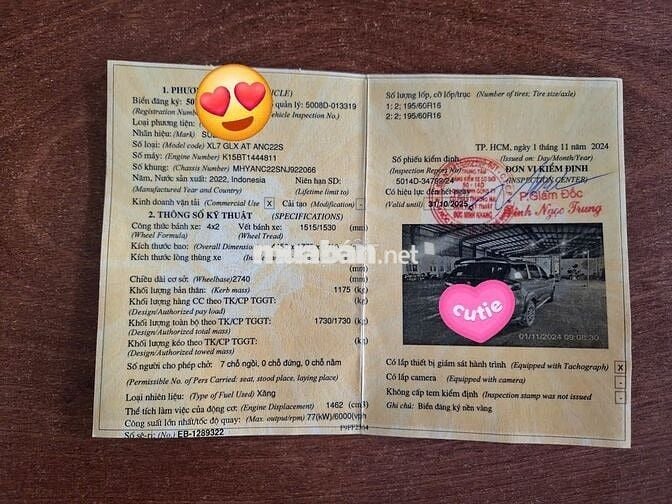 1. PHƯƠ
Biển đăng ký: 50
quản lý: 5008D-013319
(Registration Numb
Vehicle Inspection No.)
Loại phương tiện:
Nhãn hiệu: (Mark) SU
Số loại: (Model code) XL7 GLX AT ANC22S
Số máy: (Engine Number) K15BT1444811
Số khung: (Chassis Number) MHYANC22SNJ922066
Năm, Nước sản xuất: 2022, Indonesia
Niên hạn SD:
(Manufactured Year and Country)
(Lifetime limit to)
Kinh doanh vận tải (Commercial Use) X Cải tạo (Modification) -
2. THÔNG SỐ KỸ THUẬT (SPECIFICATIONS)
Công thức bánh xe: 4x2 Vết bánh xe: 1515/1530
(Wheel Formula) (Wheel Tread) (mm)
Kích thước bao: (Overall Dimension
Kích thước lòng thùng xe
(mm)
Chiều dài cơ sở: (Wheelbase) 2740 (mm)
Khối lượng bản thân: (Kerb mass) 1175 (kg)
Khối lượng hàng CC theo TK/CP TGGT:
(Design/Authorized pay load)
Khối lượng toàn bộ theo TK/CP TGGT: 1730/1730 (kg)
(Design/Authorized total mass)
Khối lượng kéo theo TK/CP TGGT: (kg)
(Design/Authorized towed mass)
Số người cho phép chở: 7 chỗ ngồi, 0 chỗ đứng, 0 chỗ nằm
(Permissible No. of Pers Carried: seat, stood place, laying place)
Loại nhiên liệu: (Type of Fuel Used) Xăng
Thể tích làm việc của động cơ: (Engine Displacement) 1462 (cm3)
Công suất lớn nhất/tốc độ quay: (Max. output/rpm) 77(kW)/6000(vph
Số sê-ri: (No.) EB-1289322
Số lượng lốp, cỡ lốp/trục (Number of tires; Tire size/axle)
1; 2; 195/60R16
2; 2; 195/60R16
TP. HCM, ngày 1 tháng 11 năm 2024
(Issued on: Day/Month/Year)
Số phiếu kiểm định
(Inspection Report No)
5014D-34769/24
Có hiệu lực đến hết ngày
(Valid until) 31/10/2025
ĐƠN VỊ KIỂM ĐỊNH
(INSPECTION CENTER)
P.Giám Đốc
Đinh Ngọc Trung
muaban.net
cutie
01/11/2024 09:08:30
Có lắp thiết bị giám sát hành trình (Equipped with Tachograph) X
Có lắp camera (Equipped with camera) -
Không cấp tem kiểm định (Inspection stamp was not issued) -
Ghi chú: Biển đăng ký nền vàng